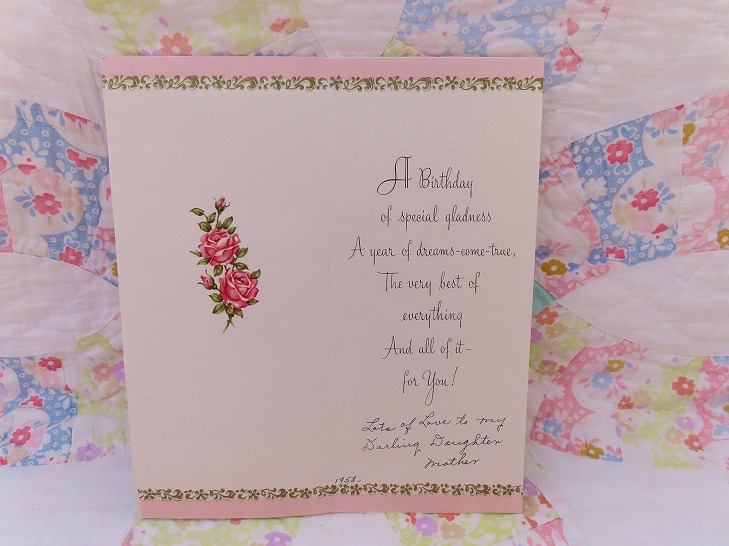 A Birthday
of special gladness
A year of dreams-come-true,
The very best of
everything
And all of it-
for You!
Lots of Love to my
Darling Daughter
Mother
1958-